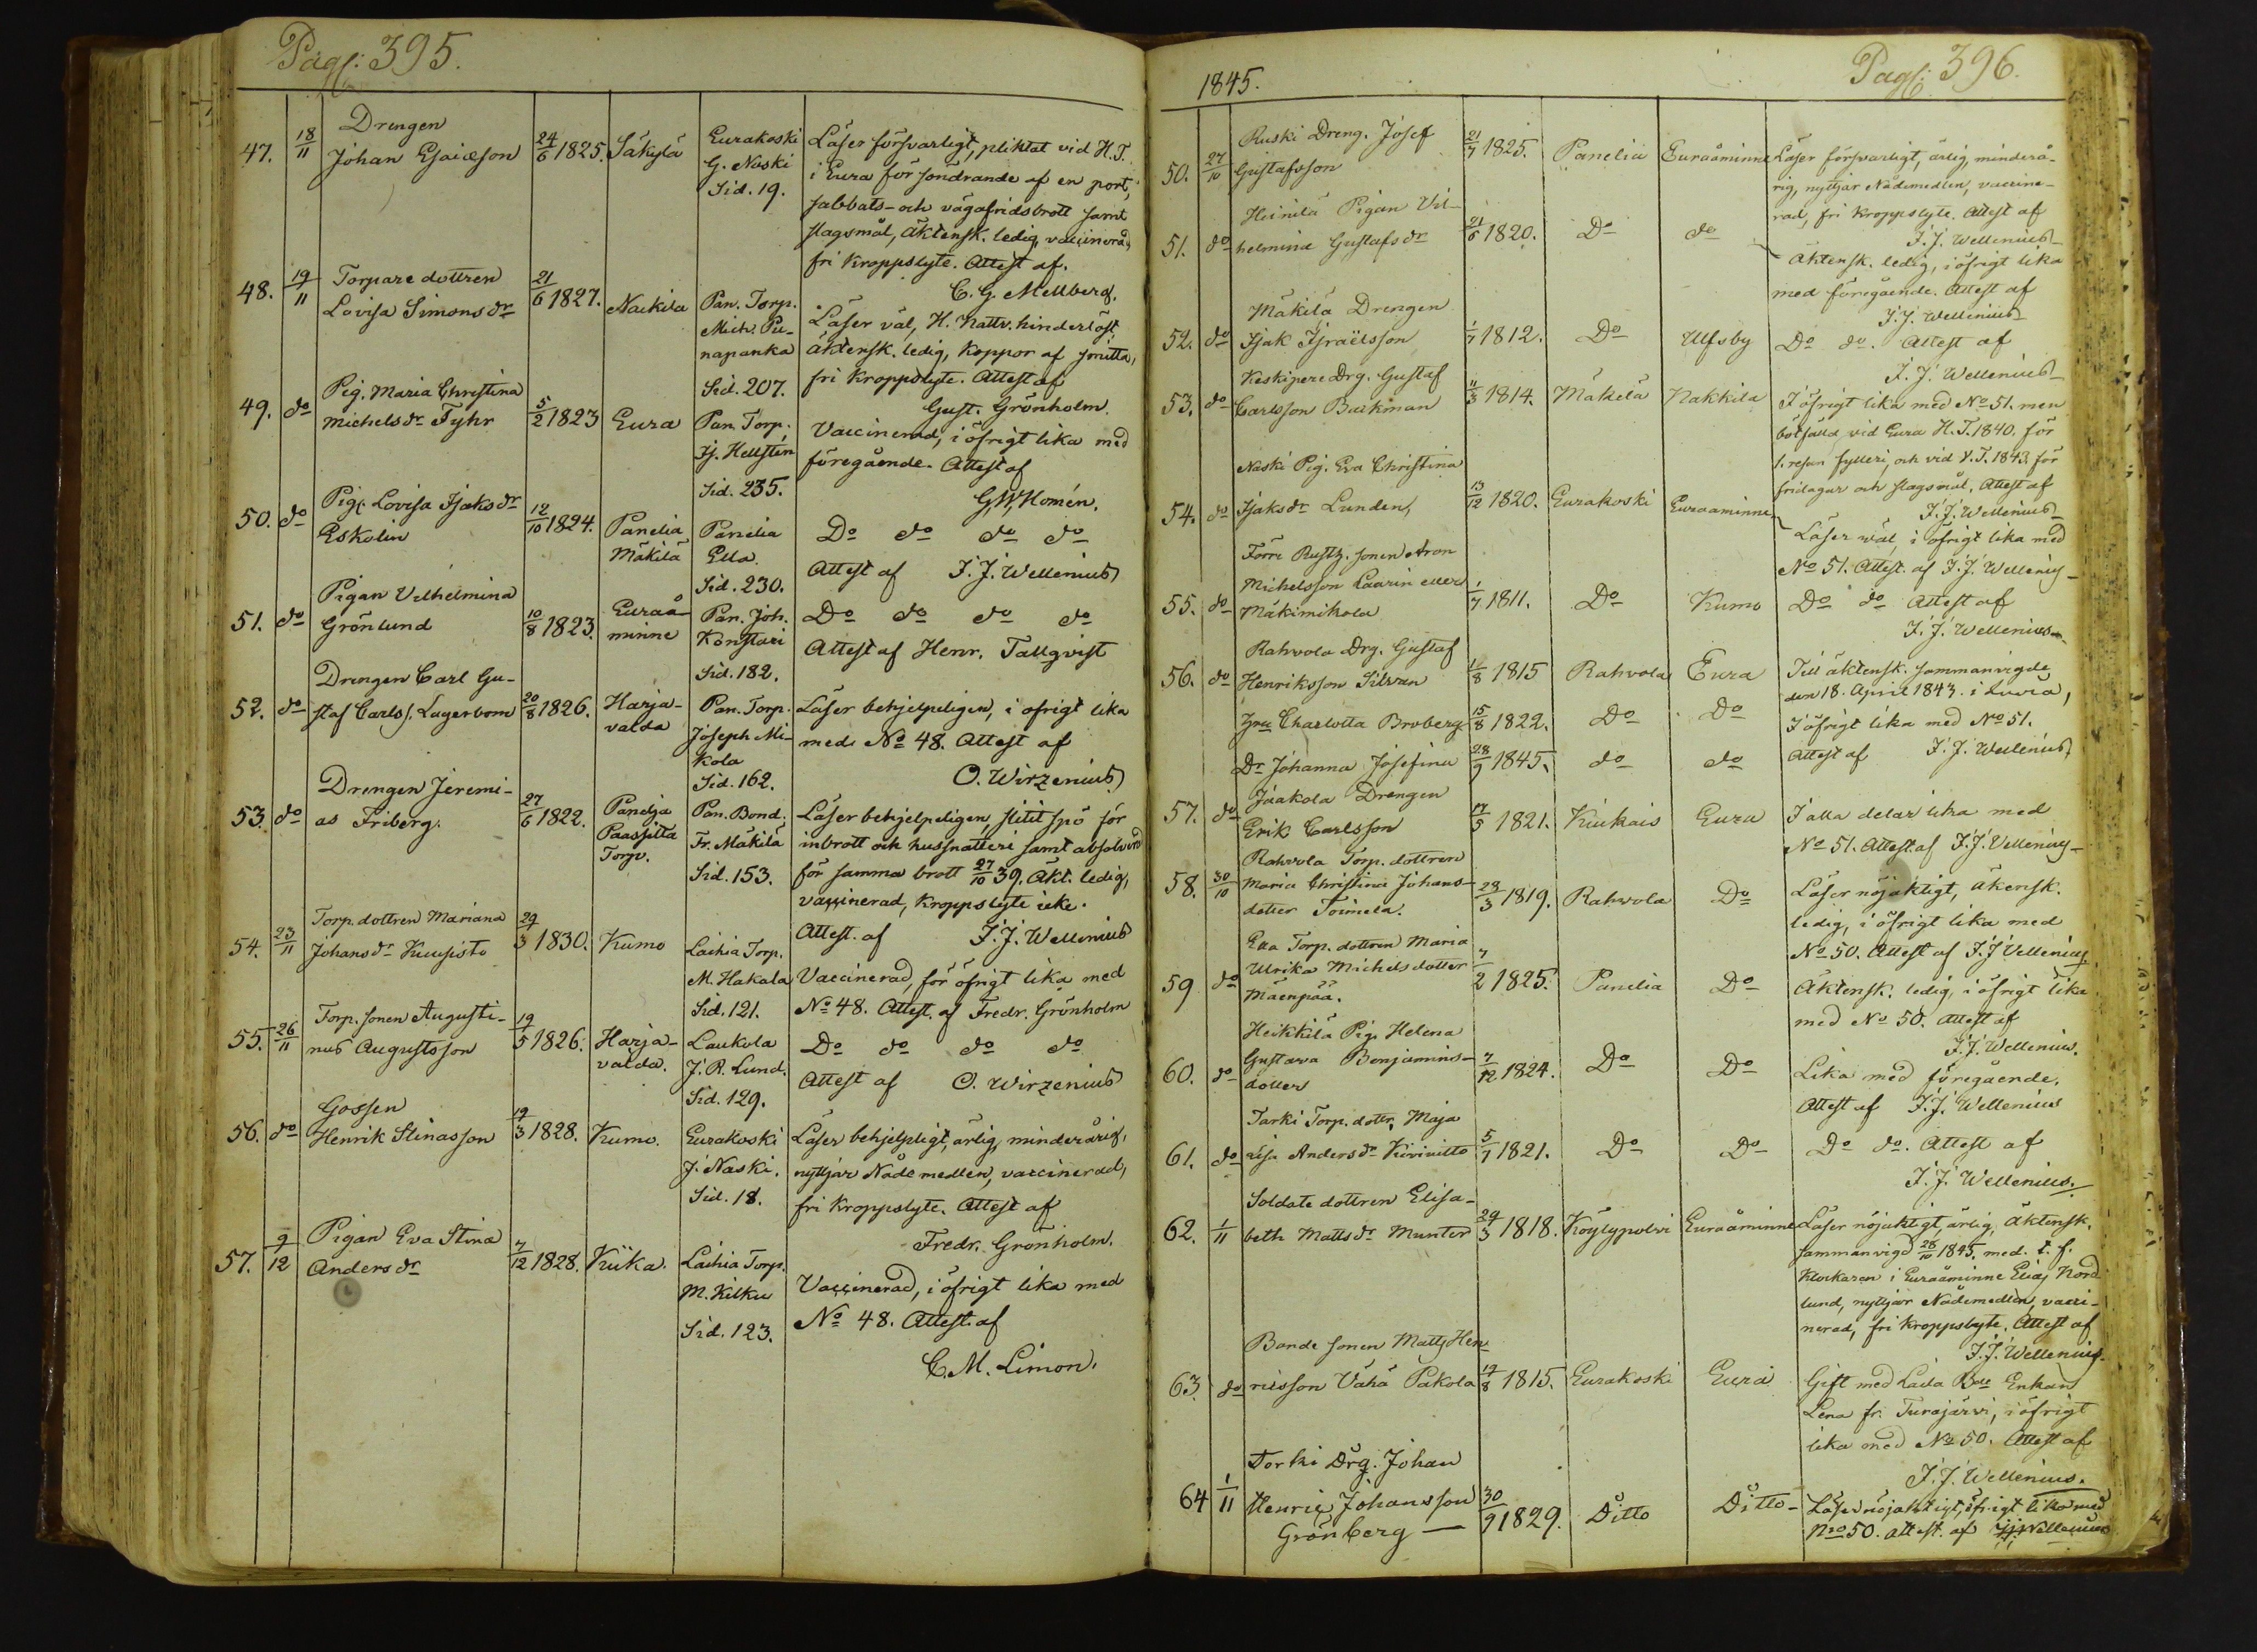 Pag: 395.
47. 18/11 Drengen
Johan Esaiæson 24/6 1825. Säkylä Eurakoski Läser försvarligt, pliktat vid H.T.
G. Naski i Eura för söndrande af en port,
Sid. 19. sabbats- och vägafridsbrott samt
slagsmål, äktensk. ledig, vaccinerad,
fri kroppslyte. Attest af.
C. G. Mellberg.
48. 19/11 Torpare dottren
Lovisa Simonsdr 21/6 1827. Nackila Pan. Torp. Läser väl, H. Nattv. hinderlöst
Mich. Pu- äktensk. ledig, koppor af smitta,
napanka fri kroppslyte. Attest af
Sid. 207. Gust. Grönholm.
49. do Pig. Maria Christina
Michelsdr Fyhr 5/2 1823 Eura Pan. Torp. Vaccinerad, i öfrigt lika med
Is. Hellsten föregående. Attest af
Sid. 235. G. W. Homén.
50. do Pig. Lovisa Isaksdr
Eskolin 12/10 1824. Panelia Panelia Do do do do
Mäkilä Ella. Attest af J. J. Wellenius
Sid. 230.
51. do Pigan Vilhelmina
Grönlund 10/8 1823. Euraå- Pan. Joh. Do do do do
minne Konstari Attest af Henr. Tallqvist
Sid. 182.
52. do Drengen Carl Gu-
staf Carls. Lagerbom 20/8 1826. Harja- Pan. Torp. Läser behjelpeligen, i öfrigt lika
valda Joseph Mi- med No 48. Attest af
kola O. Wirzenius
Sid. 162.
53. do Drengen Jeremi-
as Friberg. 27/6 1822. Panelja Pan. Bond. Läser behjelpeligen, slitit spö för
Paassilta Fr. Mäkilä inbrott och hussnatteri samt absolverad
Torp. Sid. 153. för samma brott 27/10 39. Äkt. ledig,
vaccinerad, kroppslyte icke.
Attest. af J. J. Wellenius
54. 23/11 Torp. dottren Mariana
Johansdr Kuusisto 29/3 1830. Kumo Laihia Torp.
M. Hakala Vaccinerad, för öfrigt lika med
Sid. 121. No 48. Attest. af Fredr. Grönholm
55. 26/11 Torp. sonen Augusti-
nus Augustsson 19/5 1826. Harja- Laukola Do do do do
valda. J. R. Lund. Attest af O. Wirzenius
Sid. 129.
56. do Gossen
Henrik Stinasson 19/3 1828. Kumo. Eurakoski Läser behjelpligt, ärlig, minderårig,
J. Naski. nyttjar Nådemedlen, vaccinerad,
Sid. 18. fri kroppslyte. Attest af
Fredr. Grönholm.
57. 9/12 Pigan Eva Stina
Andersdr 7/12 1828. Kiika. Laihia Torp.
M. Kilku Vaccinerad, i öfrigt lika med
Sid. 123. No 48. Attest. af
C. M. Limon.
1845. Pag: 396.
50. 27/10 Ruski Dreng. Josef
Gustafsson 21/7 1825. Panelia Euraåminne Läser försvarligt, ärlig, minderå-
rig, nyttjar Nådemedlen, vaccine-
rad, fri kroppslyte. Attest af
J. J. Wellenius
51. do Heinilä Pigan Vil-
helmina Gustafsdr 21/6 1820. Do do Äktensk. ledig, i öfrigt lika
med föregående. Attest af
J. J. Wellenius
52. do Mäkilä Drengen
Isak Israëlsson 1/7 1812. Do Ulfsby Do do. Attest af
J. J. Wellenius
53. do Keskipere Drg. Gustaf
Carlsson Backman 11/3 1814. Mäkelä Nakkila I öfrigt lika med No 51. men
bötfälld vid Eura H.T. 1840. för
1. resan fylleri, och vid V.T. 1843. för
fridagar och slagsmål. Attest af
J. J. Wellenius
54. do Naski Pig. Eva Christina
Isaksdr Lunden, 13/12 1820. Eurakoski Euraaminne Läser wäl, i öfrigt lika med
No 51. Attest. af J. J. Wellenius
55. do Torre Rusth. sonen Aron
Michelsson Laurin eller
Mäkimikola 1/7 1811. Do Kumo Do do Attest af
J. J. Wellenius
56. do Rahvola Drg. Gustaf
Henriksson Silvan 16/8 1815 Rahvola Eura Till äktensk. sammanvigde
den 18. April 1843. i Luvia,
Charlotta Broberg 15/8 1822. Do Do I öfrigt lika med No 51.
Dr Johanna Josefina 28/9 1845. do do Attest af J. J. Wellenius
57. do Jaakola Drengen
Erik Carlsson 17/5 1821. Kiukais Eura I alla delar lika med
No 51. Attest af J. J. Wellenius
58. 30/10 Rahvola Torp. dottren
Maria Christina Johans-
dotter Toimela. 28/3 1819. Rahvola Do Läser nöjaktigt, äktensk.
ledig, i öfrigt lika med
No 50. Attest af J. J. Wellenius
59 do Ella Torp. dottren Maria
Ulrika Michelsdotter
Mäenpää. 7/2 1825. Panelia Do Äktensk. ledig, i öfrigt lika
med No 50. Attest af
J. J. Wellenius.
60. do Heikkilä Pig. Helena
Gustava Benjamins-
dotter 7/12 1824. Do Do Lika med föregående.
Attest af J. J. Wellenius
61. do Tarki Torp. dottr. Maja
Lisa Andersdr Kivivitto 5/1 1821. Do Do Do do. Attest af
J. J. Wellenius.
62. 1/11 Soldate dottren Elisa-
beth Mattsdr Munter 29/3 1818. Köylypolvi Euraåminne Läser nöjaktigt, ärlig, äktensk.
sammanvigd 28/10 1845. med. t. f.
Klockaren i Euraåminne Elias Nord
lund, nyttjar Nådemedlen, vacci-
nerad, fri kroppslyte. Attest af
J. J. Wellenius.
63. do Bonde sonen Matts Hen-
ricsson Vähä Pakola 19/8 1815. Eurakoski Eura Gift med Laila Bde Enkan
Lena fr. Turajärvi, i öfrigt
lika med No 50. Attest af
J. J. Wellenius.
64 1/11 Torki Drg. Johan
Henric Johansson 30/9 1829. Ditto Ditto- Läser nöjaktigt, öfrigt lika med
Grönberg — Nro 50. attest. af J. J. Wellenius